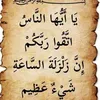 يَا أَيُّهَا النَّاسُ
اتَّقُوا رَبَّكُمْ
إِنَّ زَلْزَلَةَ السَّاعَةِ
شَيْءٌ عَظِيمٌ